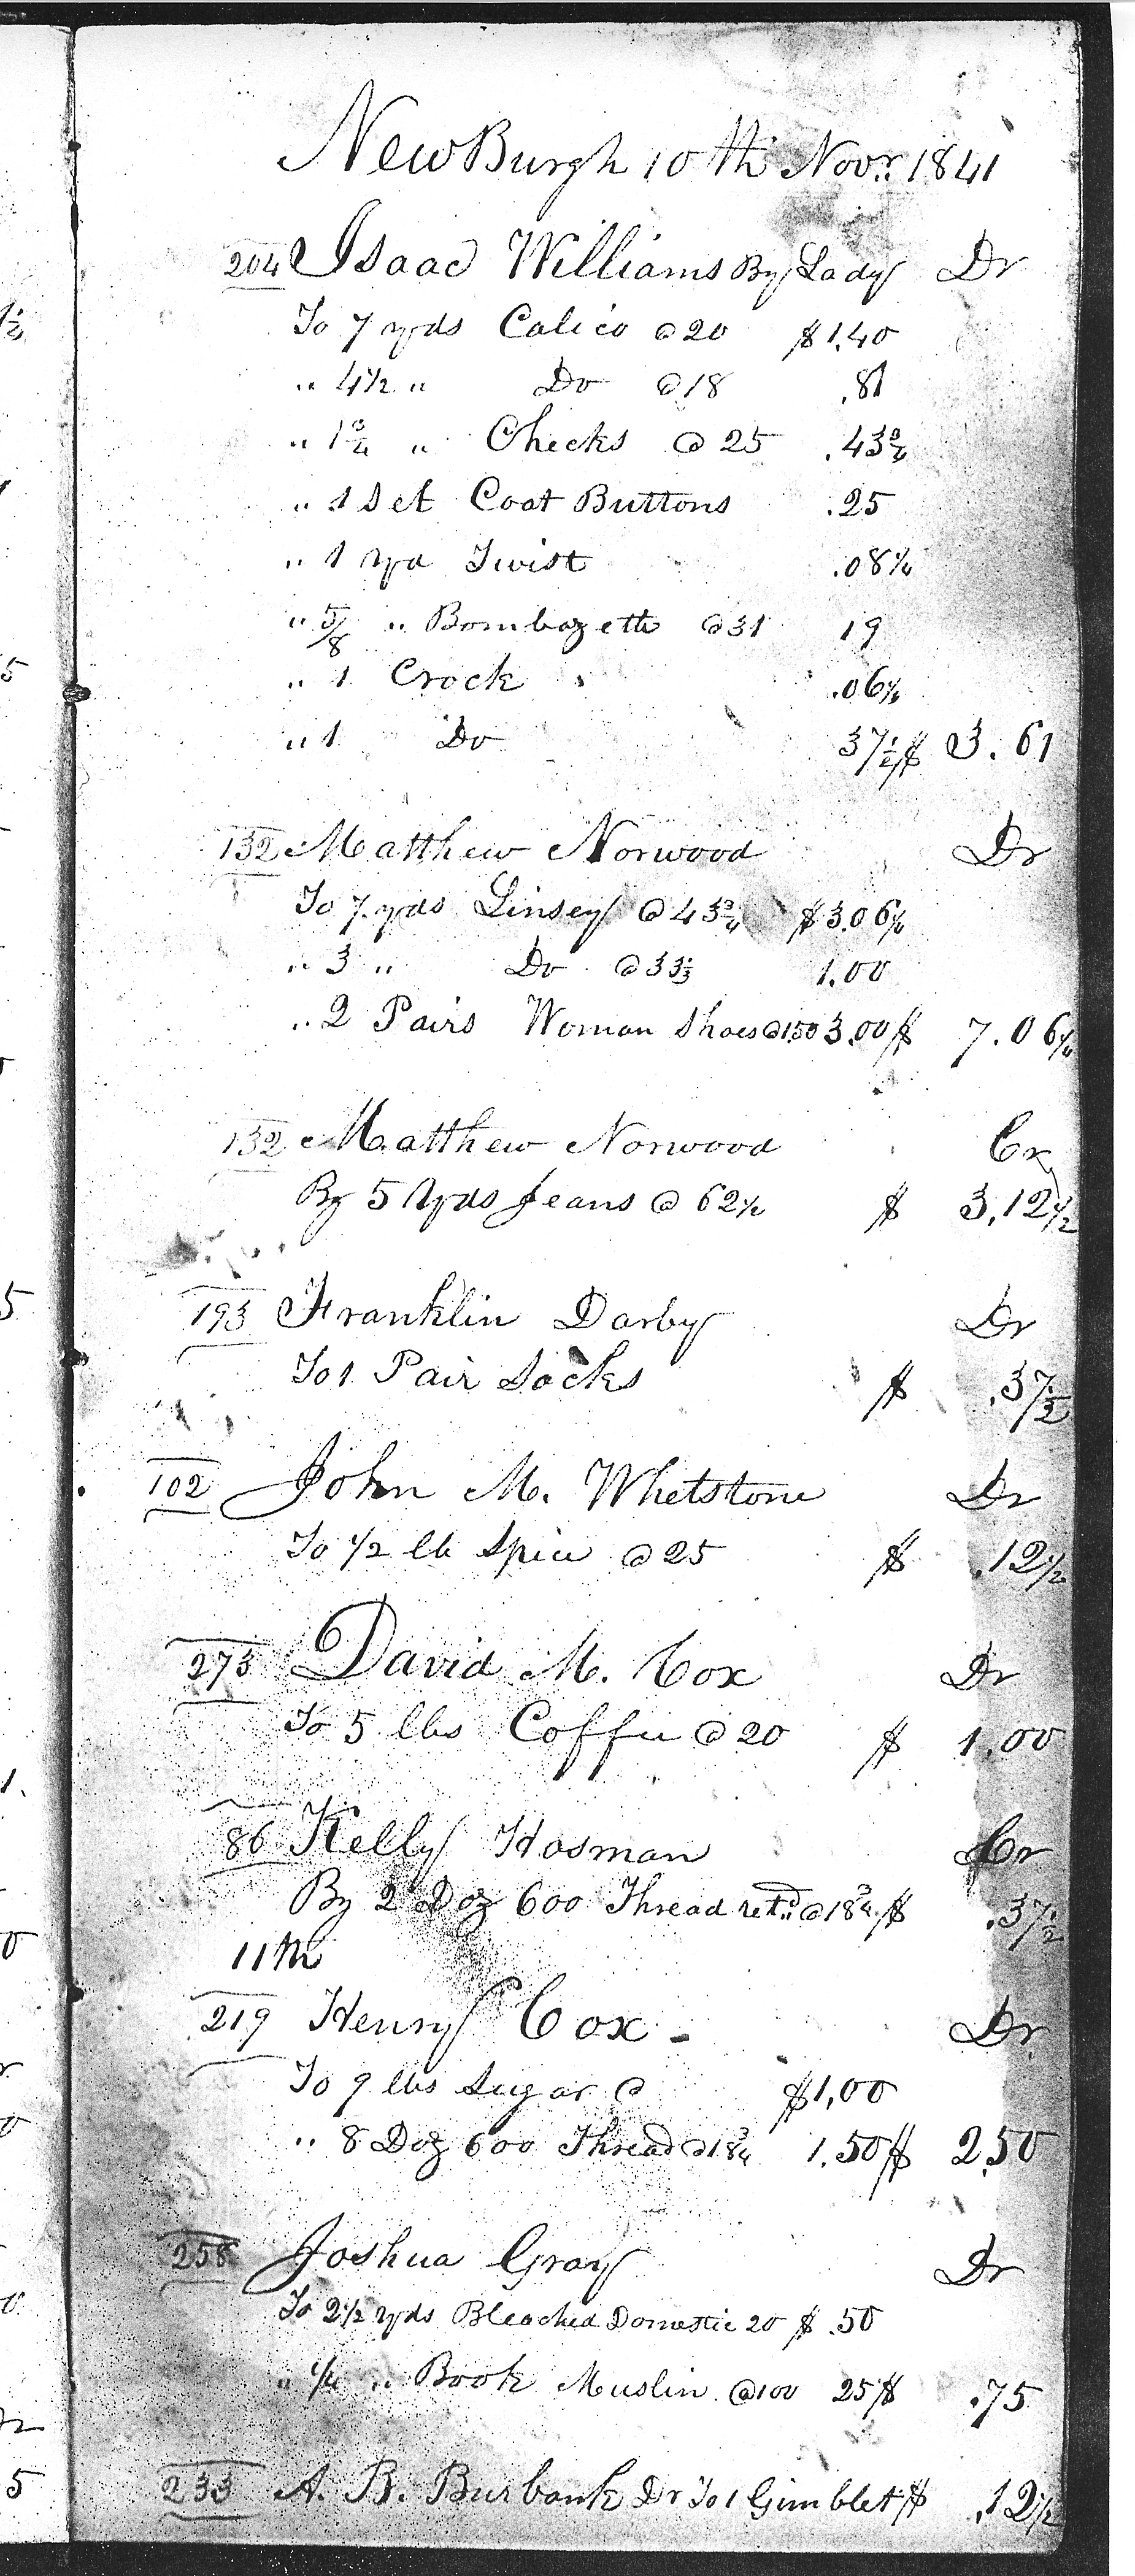 NewBurgh 10th Novr. 1841
204 Isaac Williams By Lady Dr
To 7 yds Calico @ 20 $1.40
" 4 1/2 " Do @ 18 .81
" 1 3/4 " Checks @ 25 .43 3/4
" 1 Set Coat Buttons .25
" 1 yd Twist .08 1/4
" 5/8 " Bombazette @ 31 19
" 1 Crock .06 1/4
" 1 Do 37 1/2 $ 3.61
132 Matthew Norwood Dr
To 7 yds Linsey @ 43 3/4 $3.06 1/4
" 3 " Do @ 33 1/3 1.00
" 2 Pairs Woman Shoes @ 1.50 3.00 $ 7.06 1/4
132 Matthew Norwood Cr
By 5 Yds Jeans @ 62 1/2 $ 3.12 1/2
193 Franklin Darby Dr
To 1 Pair Socks $ .37 1/2
102 John M. Whetstone Dr
To 1/2 lb Spice @ 25 $ .12 1/2
273 David M. Cox Dr
To 5 lbs Coffee @ 20 $ 1.00
86 Kelly Hosman Cr
By 2 Doz 600 Thread retd. @ 18 3/4 $ .37 1/2
11th
219 Henry Cox - Dr
To 9 lbs Sugar @ $1.00
" 8 Doz 600 Thread @ 18 3/4 1.50 $ 2.50
258 Joshua Gray Dr
To 2 1/2 yds Bleached Domestic 20 $ .50
" 1/4 " Book Muslin @ 100 25 $ .75
233 A. B. Burbank Dr To 1 Gimblet $ .12 1/2